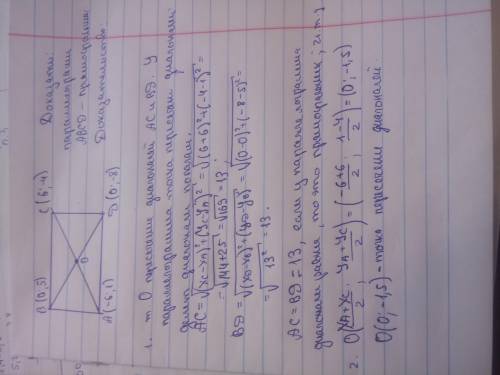 B(0;5)
C(6;-4)
A(-6;1)
D(0;-8)
O
Доказать:
параллелограмм
ABCD - прямоугольник
Доказательство:
1. т. O пересечение диагоналей AC и BD. У
параллелограмма точка пересечения диагоналей
делит диагонали пополам.
AC=√(xC-xA)²+(yC-yA)² = √(6+6)²+(-4-1)² =
= √144+25 = √169 = 13
BD = √(xD-xB)²+(yD-yB)² = √(0-0)²+(-8-5)² =
= √13² = 13.
AC=BD=13, если у параллелограмма
диагонали равны, то это прямоугольник, ч.т.д.
2. O(xA+xC/2; yA+yC/2) = (-6+6/2; 1-4/2) = (0;-1,5)
O(0;-1,5) - точка пересечения диагоналей